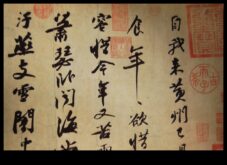 自我來黃州已
食年〻欲惜
容惜今年又苦雨
蕭瑟卧聞海棠
汙燕支雪闇中